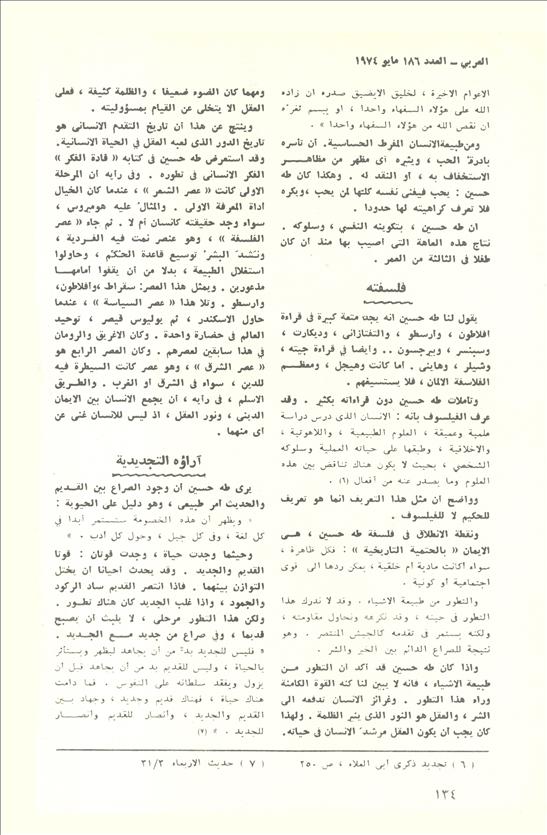 العربي ــ العدد ١٨٦ مايو ١٩٧٤
الاعوام الاخيرة ، لخليق الايضيق صدره ان زاده
الله على هؤلاء السفهاء واحدا ، او يبسم ثغره
ان نقص الله من هؤلاء السفهاء واحدا » .
ومن طبيعة الانسان المفرط الحساسية. أن تأسره
بادرة الحب ، ويثيره أي مظهر من مظاهــر
الاستخفاف به ، او النقد له . وهكذا كان طه
حسين : يحب فيفنى نفسه كلها لمن يحب ،ويكره
فلا تعرف كراهيته لها حدودا .
ان طه حسين ، بتكوينه النفسي ، وسلوكه .
نتاج هذه العاهة التى اصيب بها منذ أن كان
طفلا فى الثالثة من العمر .
فلسفته
يقول لنا طه حسين انه يجد متعة كبيرة فى قراءة
افلاطون ، وأرسطو ، والتفتازانى ، وديكارت ،
وسبنسر ، وبيرجسون .. وايضا في قراءة جيته ،
وشيلر ، وهاينى . أما كانت وهيجل ، ومعظــم
الفلاسفة الالمان ، فلا يستسيغهم .
وتأملات طه حسين دون قراءاته بكثير . وقد
عرف الفيلسوف بأنه : الانسان الذى درس دراسة
علمية وعميقة ، العلوم الطبيعية ، واللاهوتية ،
والاخلاقية ، وطبقها على حياته العملية وسلوكه
الشخصي ، بحيث لا يكون هناك تناقض بين هذه
العلوم وما يصدر عنه من أفعال (٦)
وواضح أن مثل هذا التعريف انما هو تعريف
للحكيم لا للفيلسوف .
ونقطة الانطلاق فى فلسفة طه حسين ، هــى
الايمان « بالحتمية التاريخية » : فكل ظاهرة ،
سواء أكانت مادية أم خلقية ، يمكن ردها الى قوى
اجتماعية أو كونية .
والتطور من طبيعة الاشياء . وقد لا ندرك هذا
التطور فى حينه ، وقد نكرهه ونحاول مقاومته ،
ولكنه يستمر فى تقدمه كالجيش المنتصر . وهو
نتيجة للصراع الدائم بين الخير والشر .
واذا كان طه حسين قد أكد أن التطور مــن
طبيعة الاشياء ، فانه لا يبين لنا كنه القوة الكامنة
وراء هذا التطور . وغرائز الانسان تدفعه الى
الشر ، والعقل هو النور الذى ينير الظلمة . ولهذا
كان يجب أن يكون العقل مرشد الانسان فى حياته.
( ٦ ) تجديد ذكرى أبى العلاء ، ص ٢٥٠
ومهما كان الضوء ضعيفا ، والظلمة كثيفة ، فعلى
العقل الا يتخلى عن القيام بمسؤوليته .
وينتج عن هذا أن تاريخ التقدم الانسانى هو
تاريخ الدور الذى لعبه العقل فى الحياة الانسانية.
وقد استعرض طه حسين فى كتابه « قادة الفكر »
الفكر الانسانى فى تطوره . وفى رأيه أن المرحلة
الاولى كانت « عصر الشعر » ، عندما كان الخيال
اداة المعرفة الاولى . والمثال عليه هوميروس ،
سواء وجد حقيقته كانسان أم لا . ثم جاء « عصر
الفلسفة » ، وهو عنصر نمت فيه الفردية ،
ونشد البشر توسيع قاعدة الحكم ، وحاولوا
استغلال الطبيعة ، بدلا من أن يقفوا أمامهــا
مذعورين . ويمثل هذا العصر: سقراط ،وأفلاطون،
وأرسطو . وتلا هذا « عصر السياسة » ، عندما
حاول الاسكندر ، ثم يوليوس قيصر ، توحيد
العالم فى حضارة واحدة . وكان الاغريق والرومان
فى هذا سابقين لعصرهم . وكان العصر الرابع هو
« عصر الشرق » ، وهو عصر كانت السيطرة فيه
للدين ، سواء فى الشرق أو الغرب . والطــريق
الاسلم ، فى رأيه ، أن يجمع الانسان بين الايمان
الدينى ، ونور العقل ، اذ ليس للانسان غنى عن
أى منهما .
آراؤه التجديدية
يرى طه حسين أن وجود الصراع بين القــديم
والحديث أمر طبيعى ، وهو دليل على الحيوية :
« ويظهر أن هذه الخصومة ستستمر أبدا فى
كل لغة ، وفى كل جيل ، وحول كل أدب . »
وحيثما وجدت حياة ، وجدت قوتان : قوتا
القديم والجديد . وقد يحدث أحيانا ان يختل
التوازن بينهما . فاذا انتصر القديم ساد الركود
والجمود ، واذا غلب الجديد كان هناك تطور .
ولكن هذا التطور مرحلى ، لا يلبث أن يصبح
قديما ، وفى صراع من جديد مــع الجـديد .
« فليس للجديد بد من أن يجاهد ليظهر ويستأثر
بالحياة ، وليس للقديم بد من أن يجاهد قبل أن
يزول ويفقد سلطانه على النفوس . فما دامت
هناك حياة ، فهناك قديم وجديد ، وجهاد بــين
القديم والجديد ، وأنصار للقديم وأنصــار
للجديد . » (٧)
( ٧ ) حديث الاربعاء ٣١/٣
١٣٤